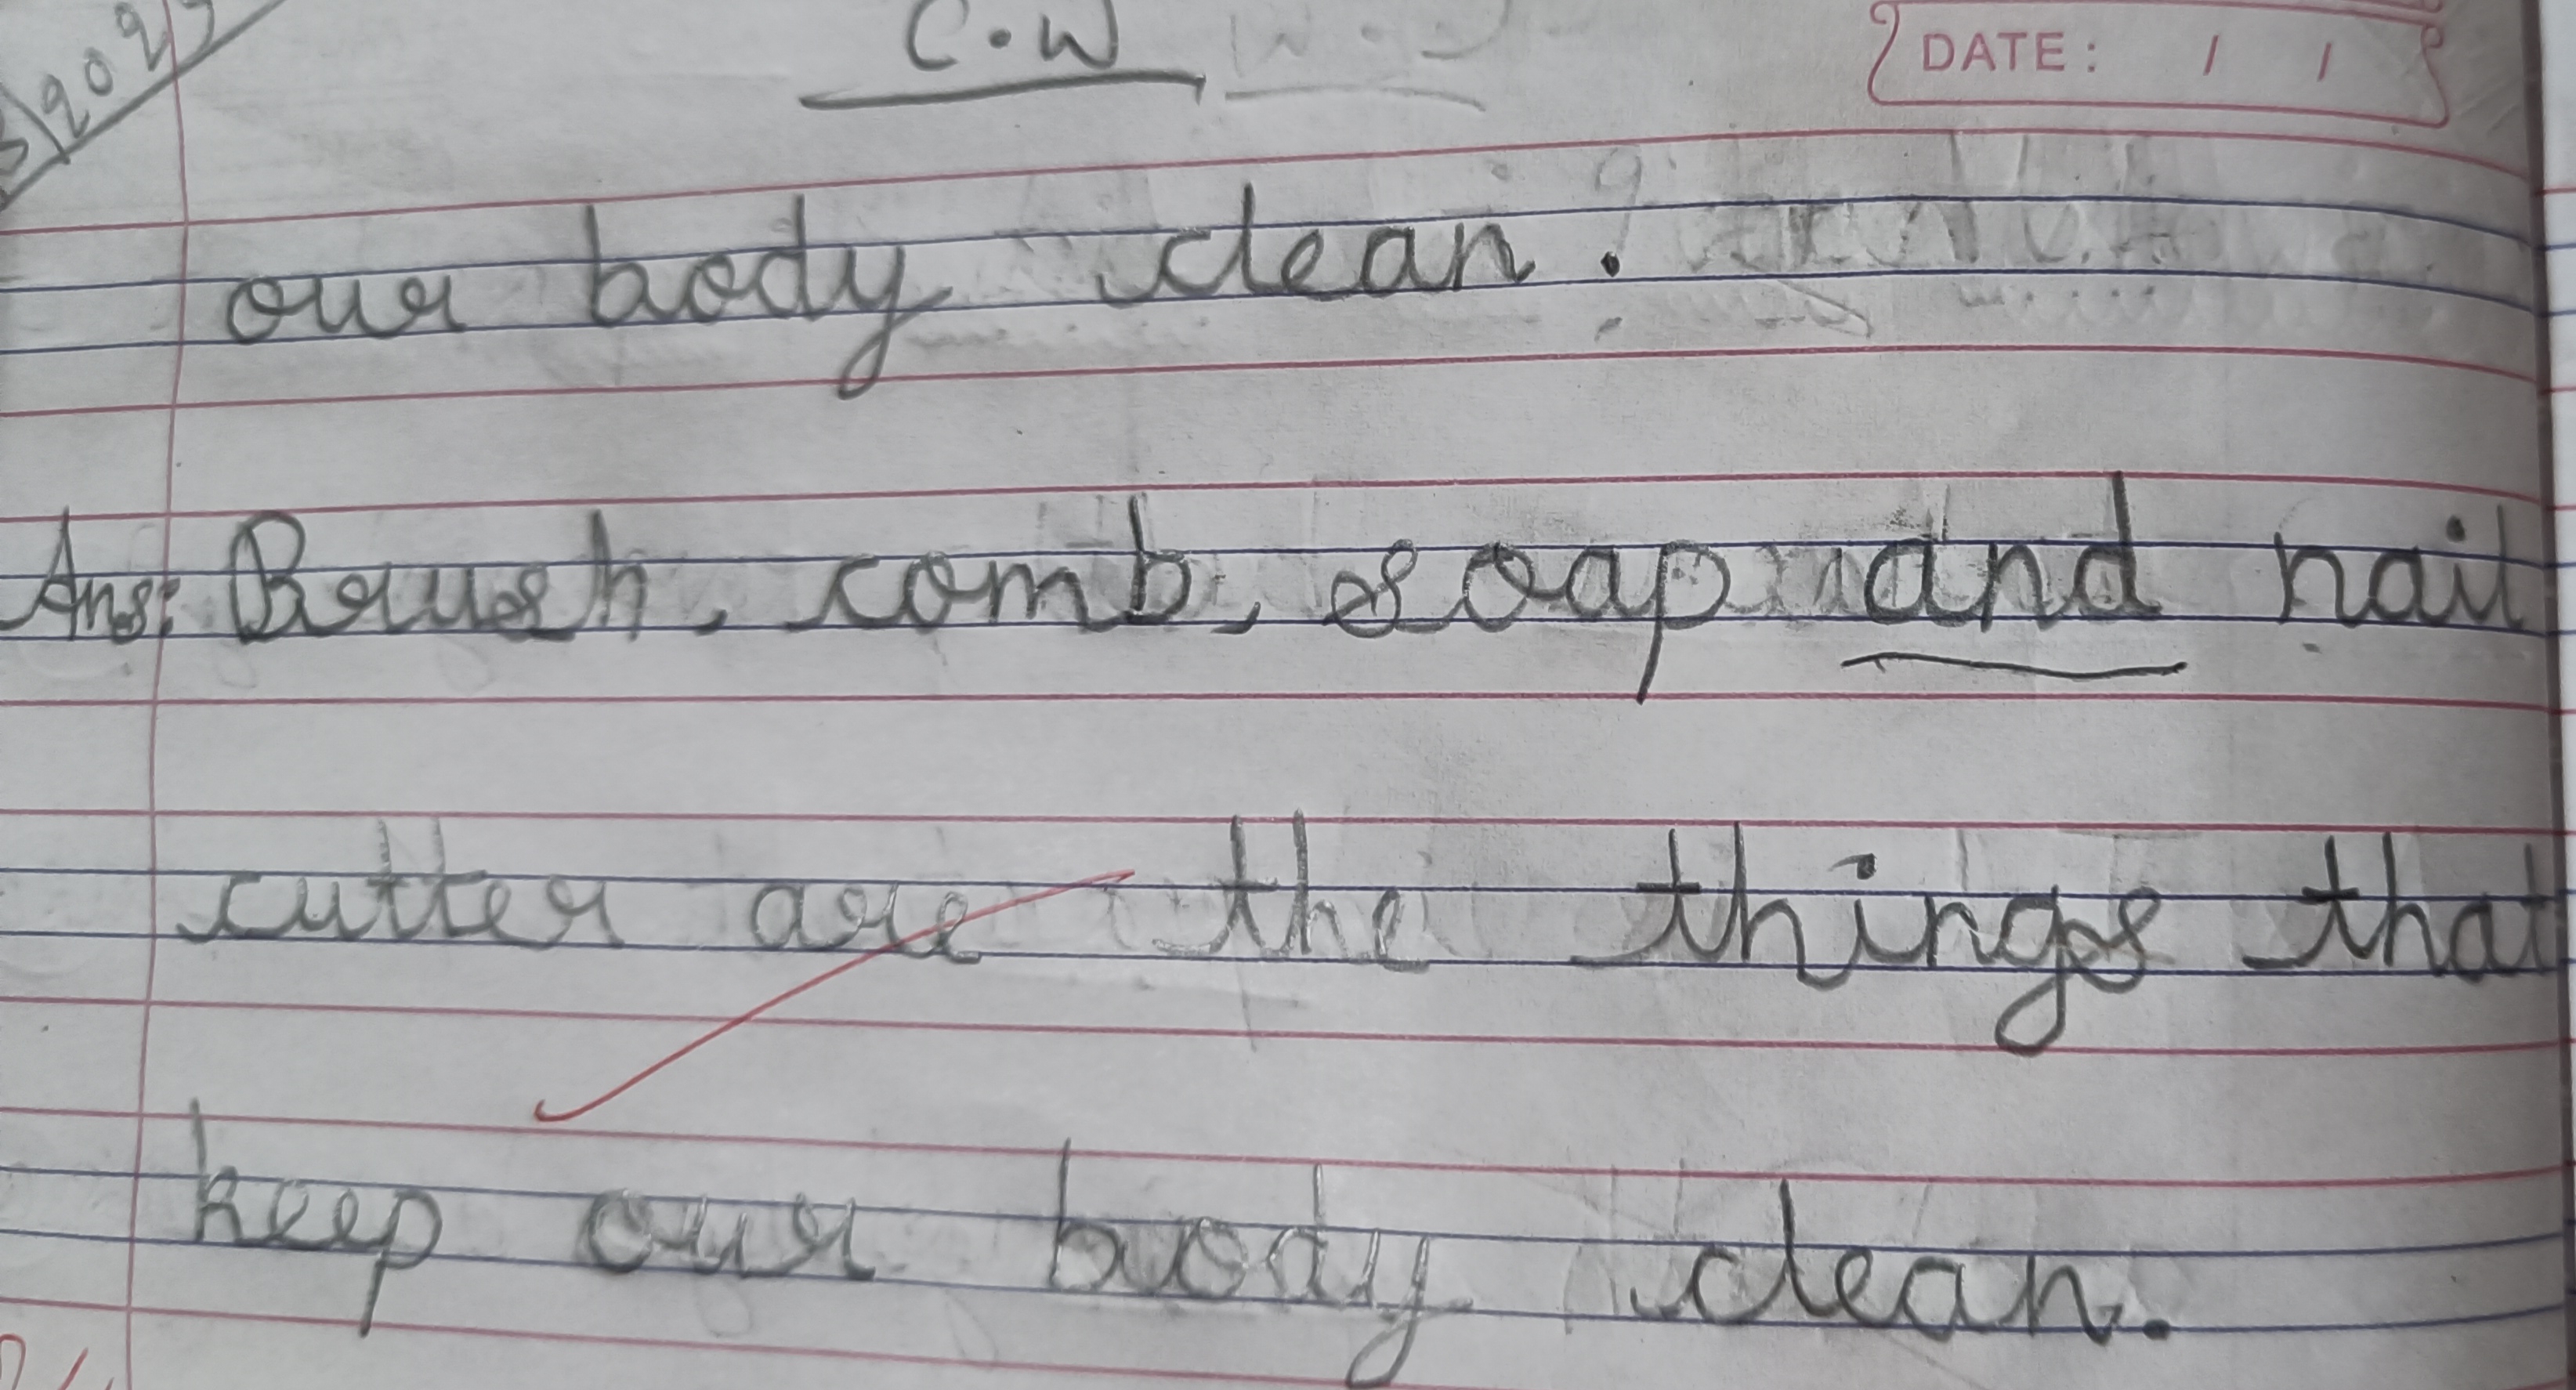 C.W
DATE: / /
our body clean.
Ans: Brush, comb, soap and nail
cutter are the things that
keep our body clean.